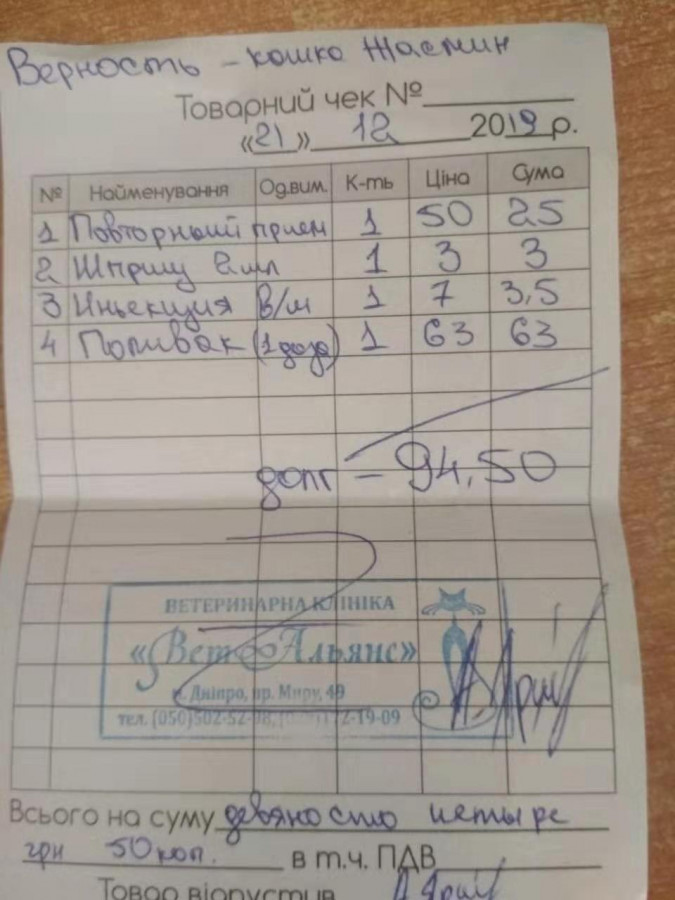 Верность - кошка Жасмин
Товарний чек №
«21» 12 2019 р.
№ Найменування Од.вим. К-ть Ціна Сума
1 Повторный прием 1 50 25
2 Шприц 2мл 1 3 3
3 Инъекция в/м 1 7 3,5
4 Поливак (1 доза) 1 63 63
долг - 94,50
ВЕТЕРИНАРНА КЛІНІКА
«Вет Альянс»
м. Дніпро, пр. Миру, 49
тел. (050)502-52-98, 172-19-09
Всього на суму девяносто четыре
грн 50 коп. в т.ч. ПДВ
Товар відпустив